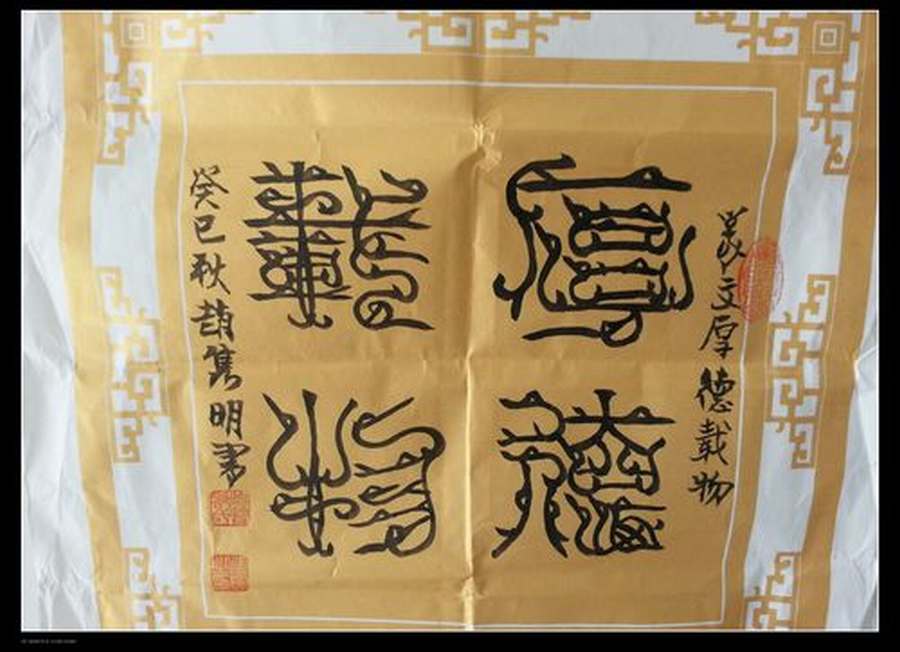 文厚德載物
厚德
載物
癸巳秋趙雋明書